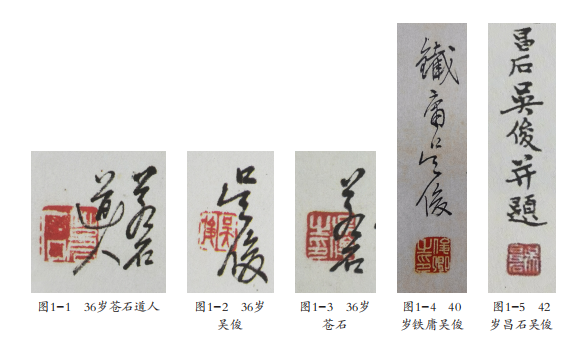 蒼石
道人
吳俊
蒼石
鐵庸吳俊
昌石吳俊并題
图1-1 36岁苍石道人
图1-2 36岁
吴俊
图1-3 36岁
苍石
图1-4 40
岁铁庸吴俊
图1-5 42
岁昌石吴俊